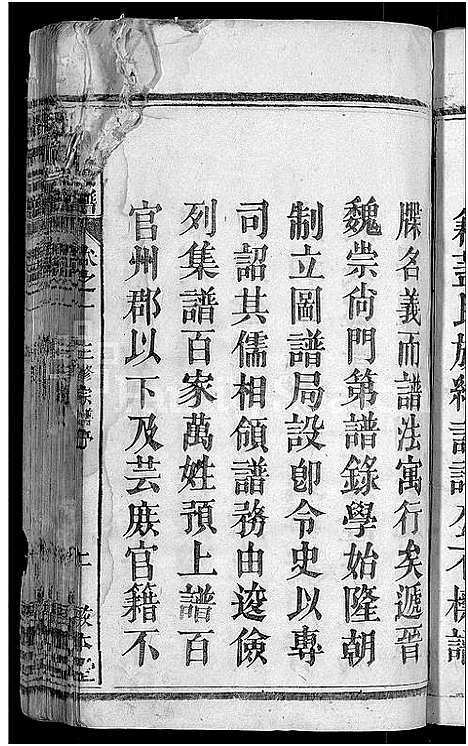 牒名義而譜法寓行矣遞晉
魏崇尙門第譜錄學始隆朝
制立圖譜局設卽令史以專
司詔其儒相領譜務由逡儉
列集譜百家萬姓預上譜百
官州郡以下及芸庶官籍不
譜
卷之一
三修宗譜序